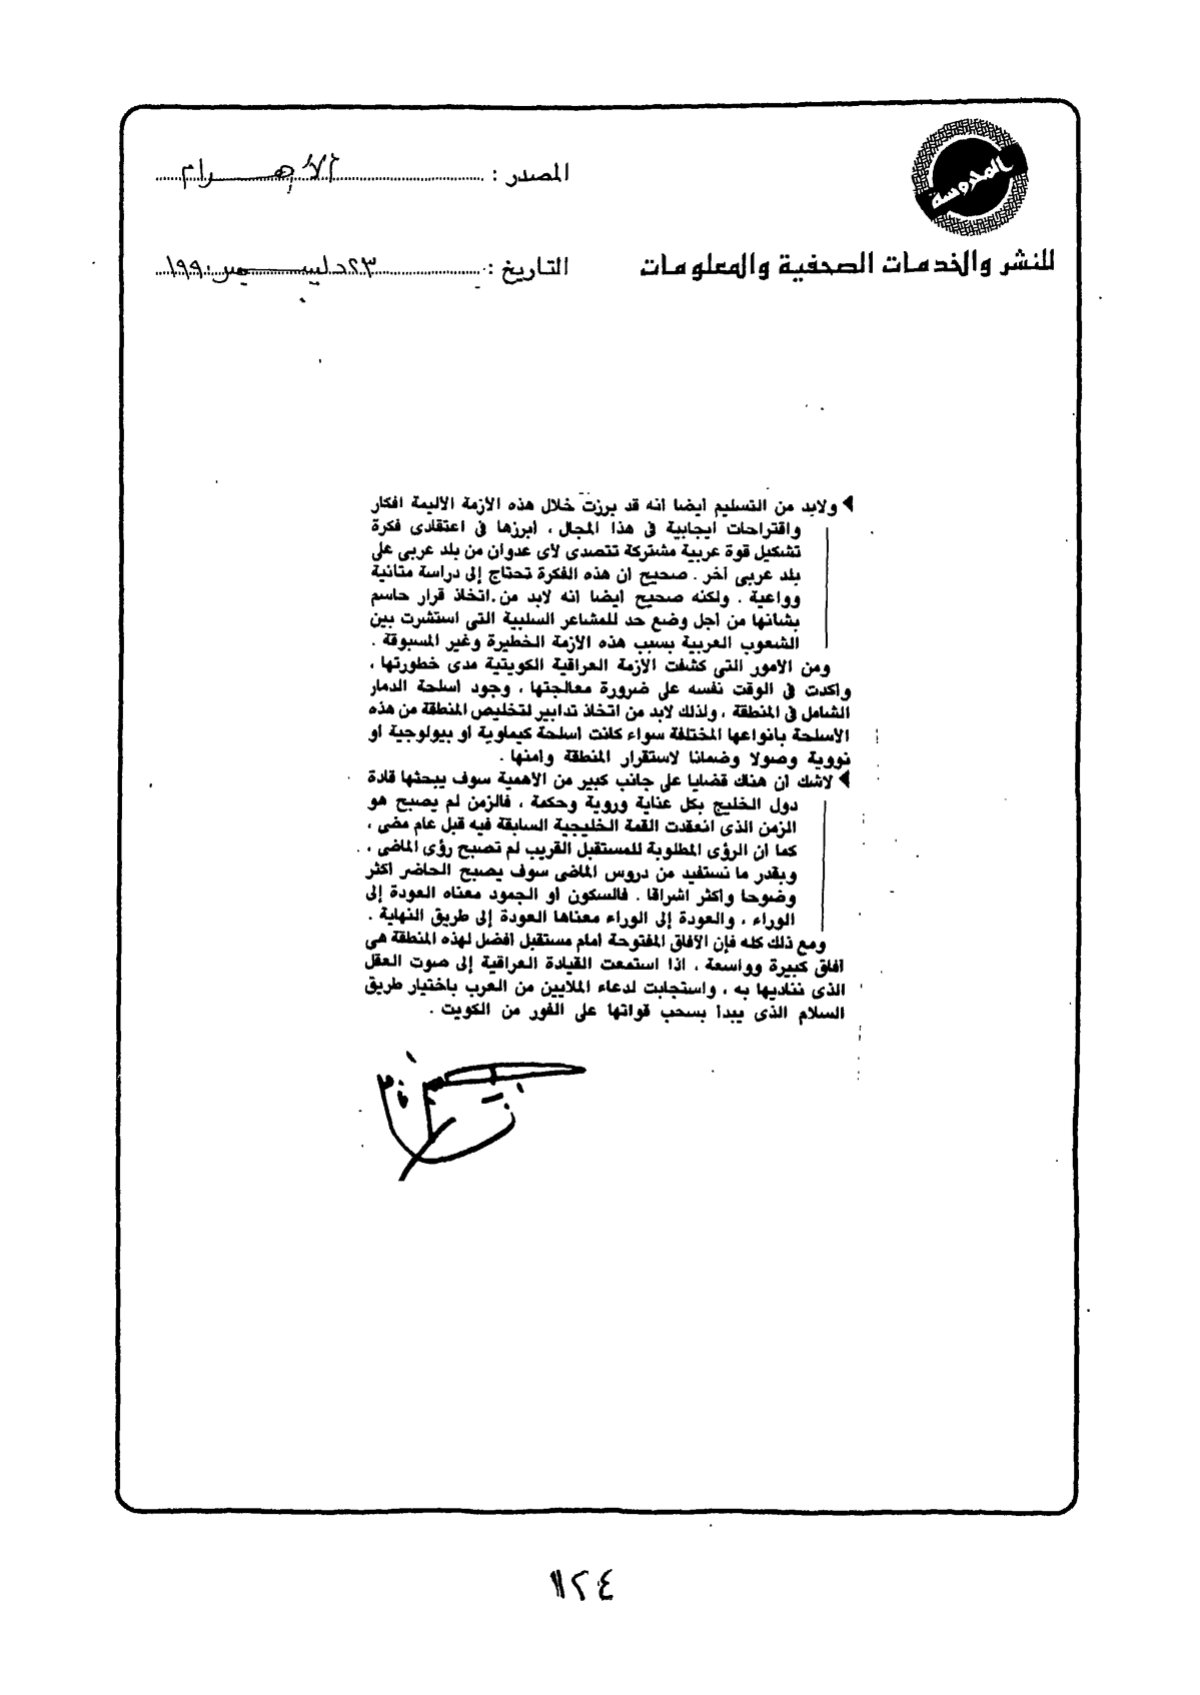 المحروسة
للنشر والخدمات الصحفية والمعلومات
المصدر : الأهرام
التاريخ : ٢٣ ديسمبر ١٩٩٠
ولابد من التسليم ايضا انه قد برزت خلال هذه الازمة الاليمة افكار
واقتراحات ايجابية فى هذا المجال ، ابرزها فى اعتقادى فكرة
تشكيل قوة عربية مشتركة تتصدى لاى عدوان من بلد عربى على
بلد عربى آخر . صحيح ان هذه الفكرة تحتاج إلى دراسة متانية
وواعية . ولكنه صحيح ايضا انه لابد من اتخاذ قرار حاسم
بشانها من اجل وضع حد للمشاعر السلبية التى استشرت بين
الشعوب العربية بسبب هذه الازمة الخطيرة وغير المسبوقة .
ومن الامور التى كشفت الازمة العراقية الكويتية مدى خطورتها ،
واكدت فى الوقت نفسه على ضرورة معالجتها ، وجود اسلحة الدمار
الشامل فى المنطقة ، ولذلك لابد من اتخاذ تدابير لتخليص المنطقة من هذه
الاسلحة بانواعها المختلفة سواء كانت اسلحة كيماوية او بيولوجية او
نووية وصولا وضمانا لاستقرار المنطقة وامنها .
لاشك ان هناك قضايا على جانب كبير من الاهمية سوف يبحثها قادة
دول الخليج بكل عناية وروية وحكمة ، فالزمن لم يصبح هو
الزمن الذى انعقدت القمة الخليجية السابقة فيه قبل عام مضى ،
كما ان الرؤى المطلوبة للمستقبل القريب لم تصبح رؤى الماضى ،
وبقدر ما نستفيد من دروس الماضى سوف يصبح الحاضر اكثر
وضوحا واكثر اشراقا . فالسكون او الجمود معناه العودة إلى
الوراء ، والعودة إلى الوراء معناها العودة إلى طريق النهاية .
ومع ذلك كله فإن الآفاق المفتوحة امام مستقبل افضل لهذه المنطقة هى
آفاق كبيرة وواسعة ، اذا استمعت القيادة العراقية إلى صوت العقل
الذى نناديها به ، واستجابت لدعاء الملايين من العرب باختيار طريق
السلام الذى يبدأ بسحب قواتها على الفور من الكويت .
١١٢٤